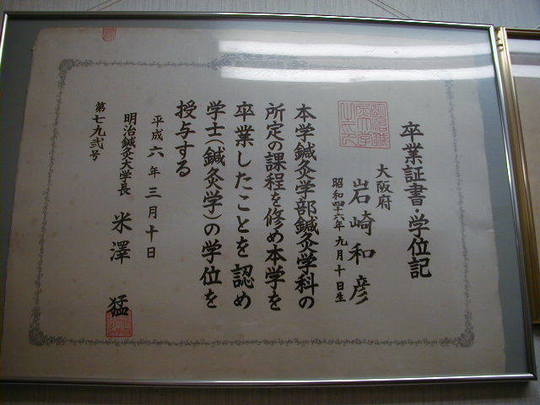 卒業証書・学位記
大阪府
岩崎和彦
昭和四十六年九月十日生
本学鍼灸学部鍼灸学科の
所定の課程を修め本学を
卒業したことを認め
学士(鍼灸学)の学位を
授与する
平成六年三月十日
明治鍼灸大学長 米澤 猛
第七九弐号